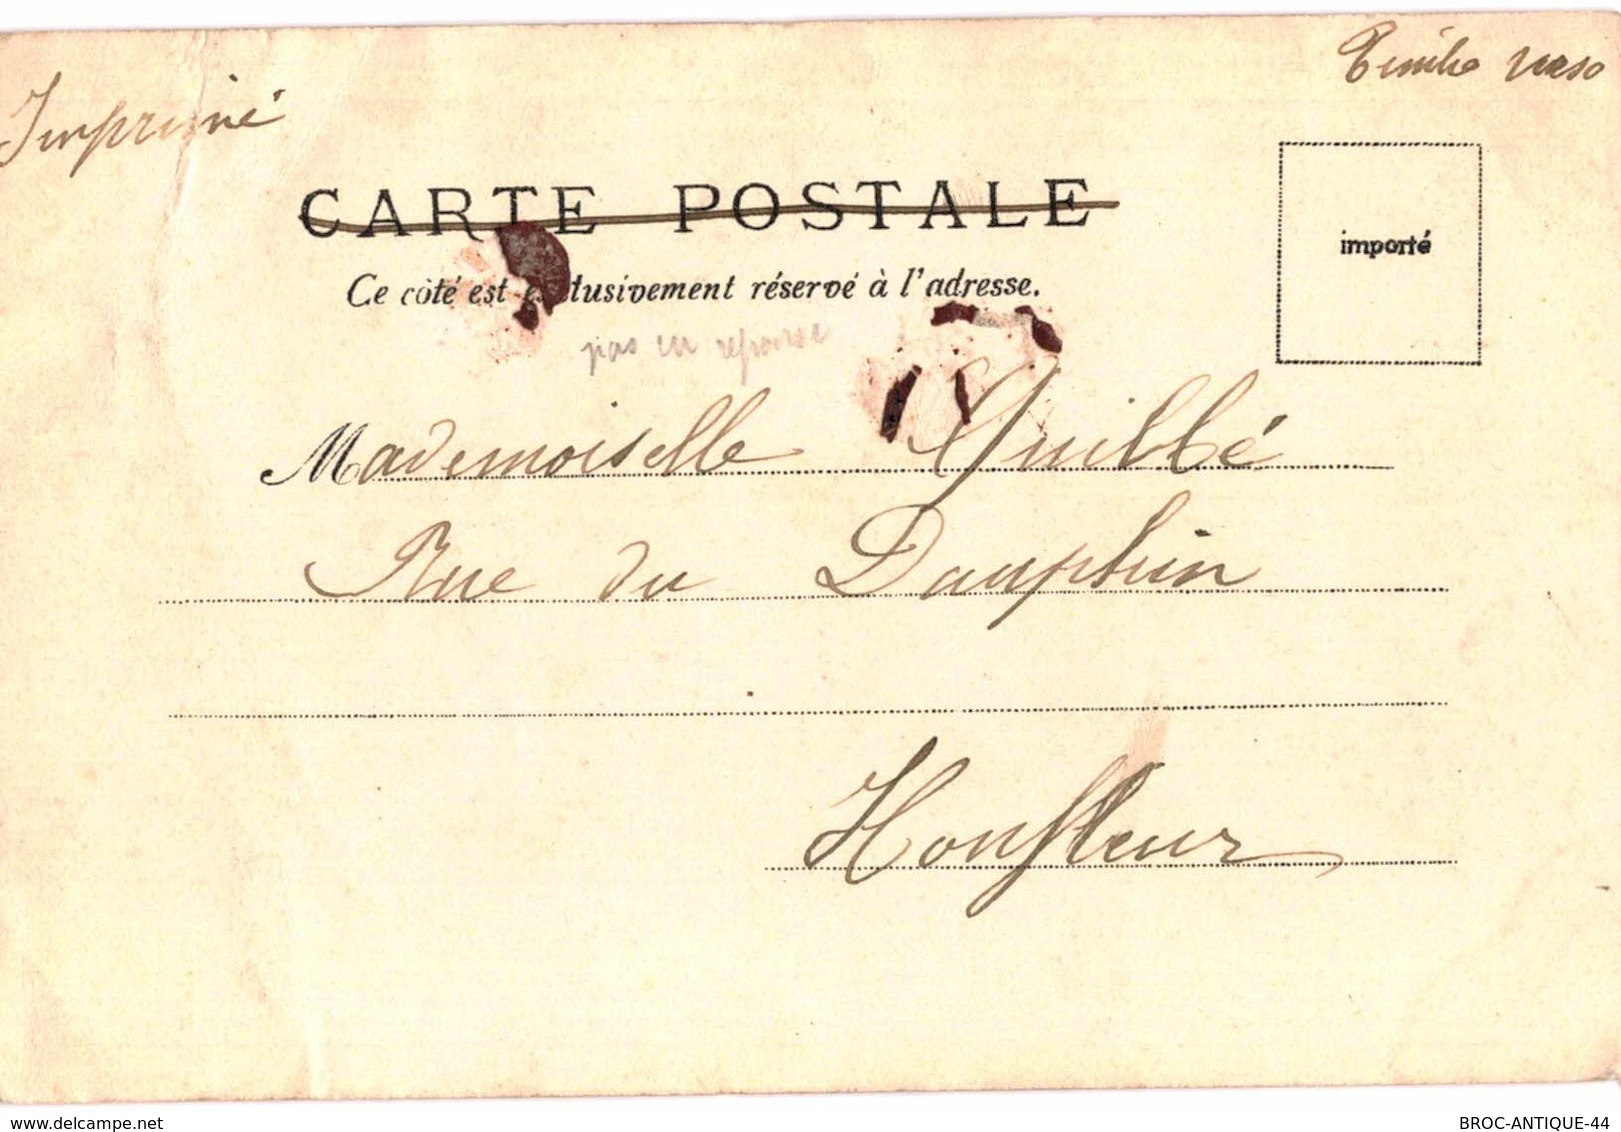 Timbre verso
Imprimé
CARTE POSTALE
importé
Ce côté est exclusivement réservé à l'adresse.
pas en reponse
Mademoiselle Guibbé
Rue du Dauphin
Honfleur
delcampe.net
BROC-ANTIQUE-44